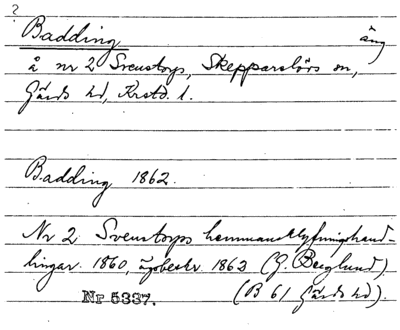 ?
Badding äng
å nr 2 Svenstorp, Skepparslövs sn,
Gärds hd, Krstd. l.
Badding 1862.
Nr 2 Svenstorps hemmansklyfningshand-
lingar. 1860, ägobeskr. 1862 (G. Berglund)
(B 61 Gärds hd).
Nr 5337.